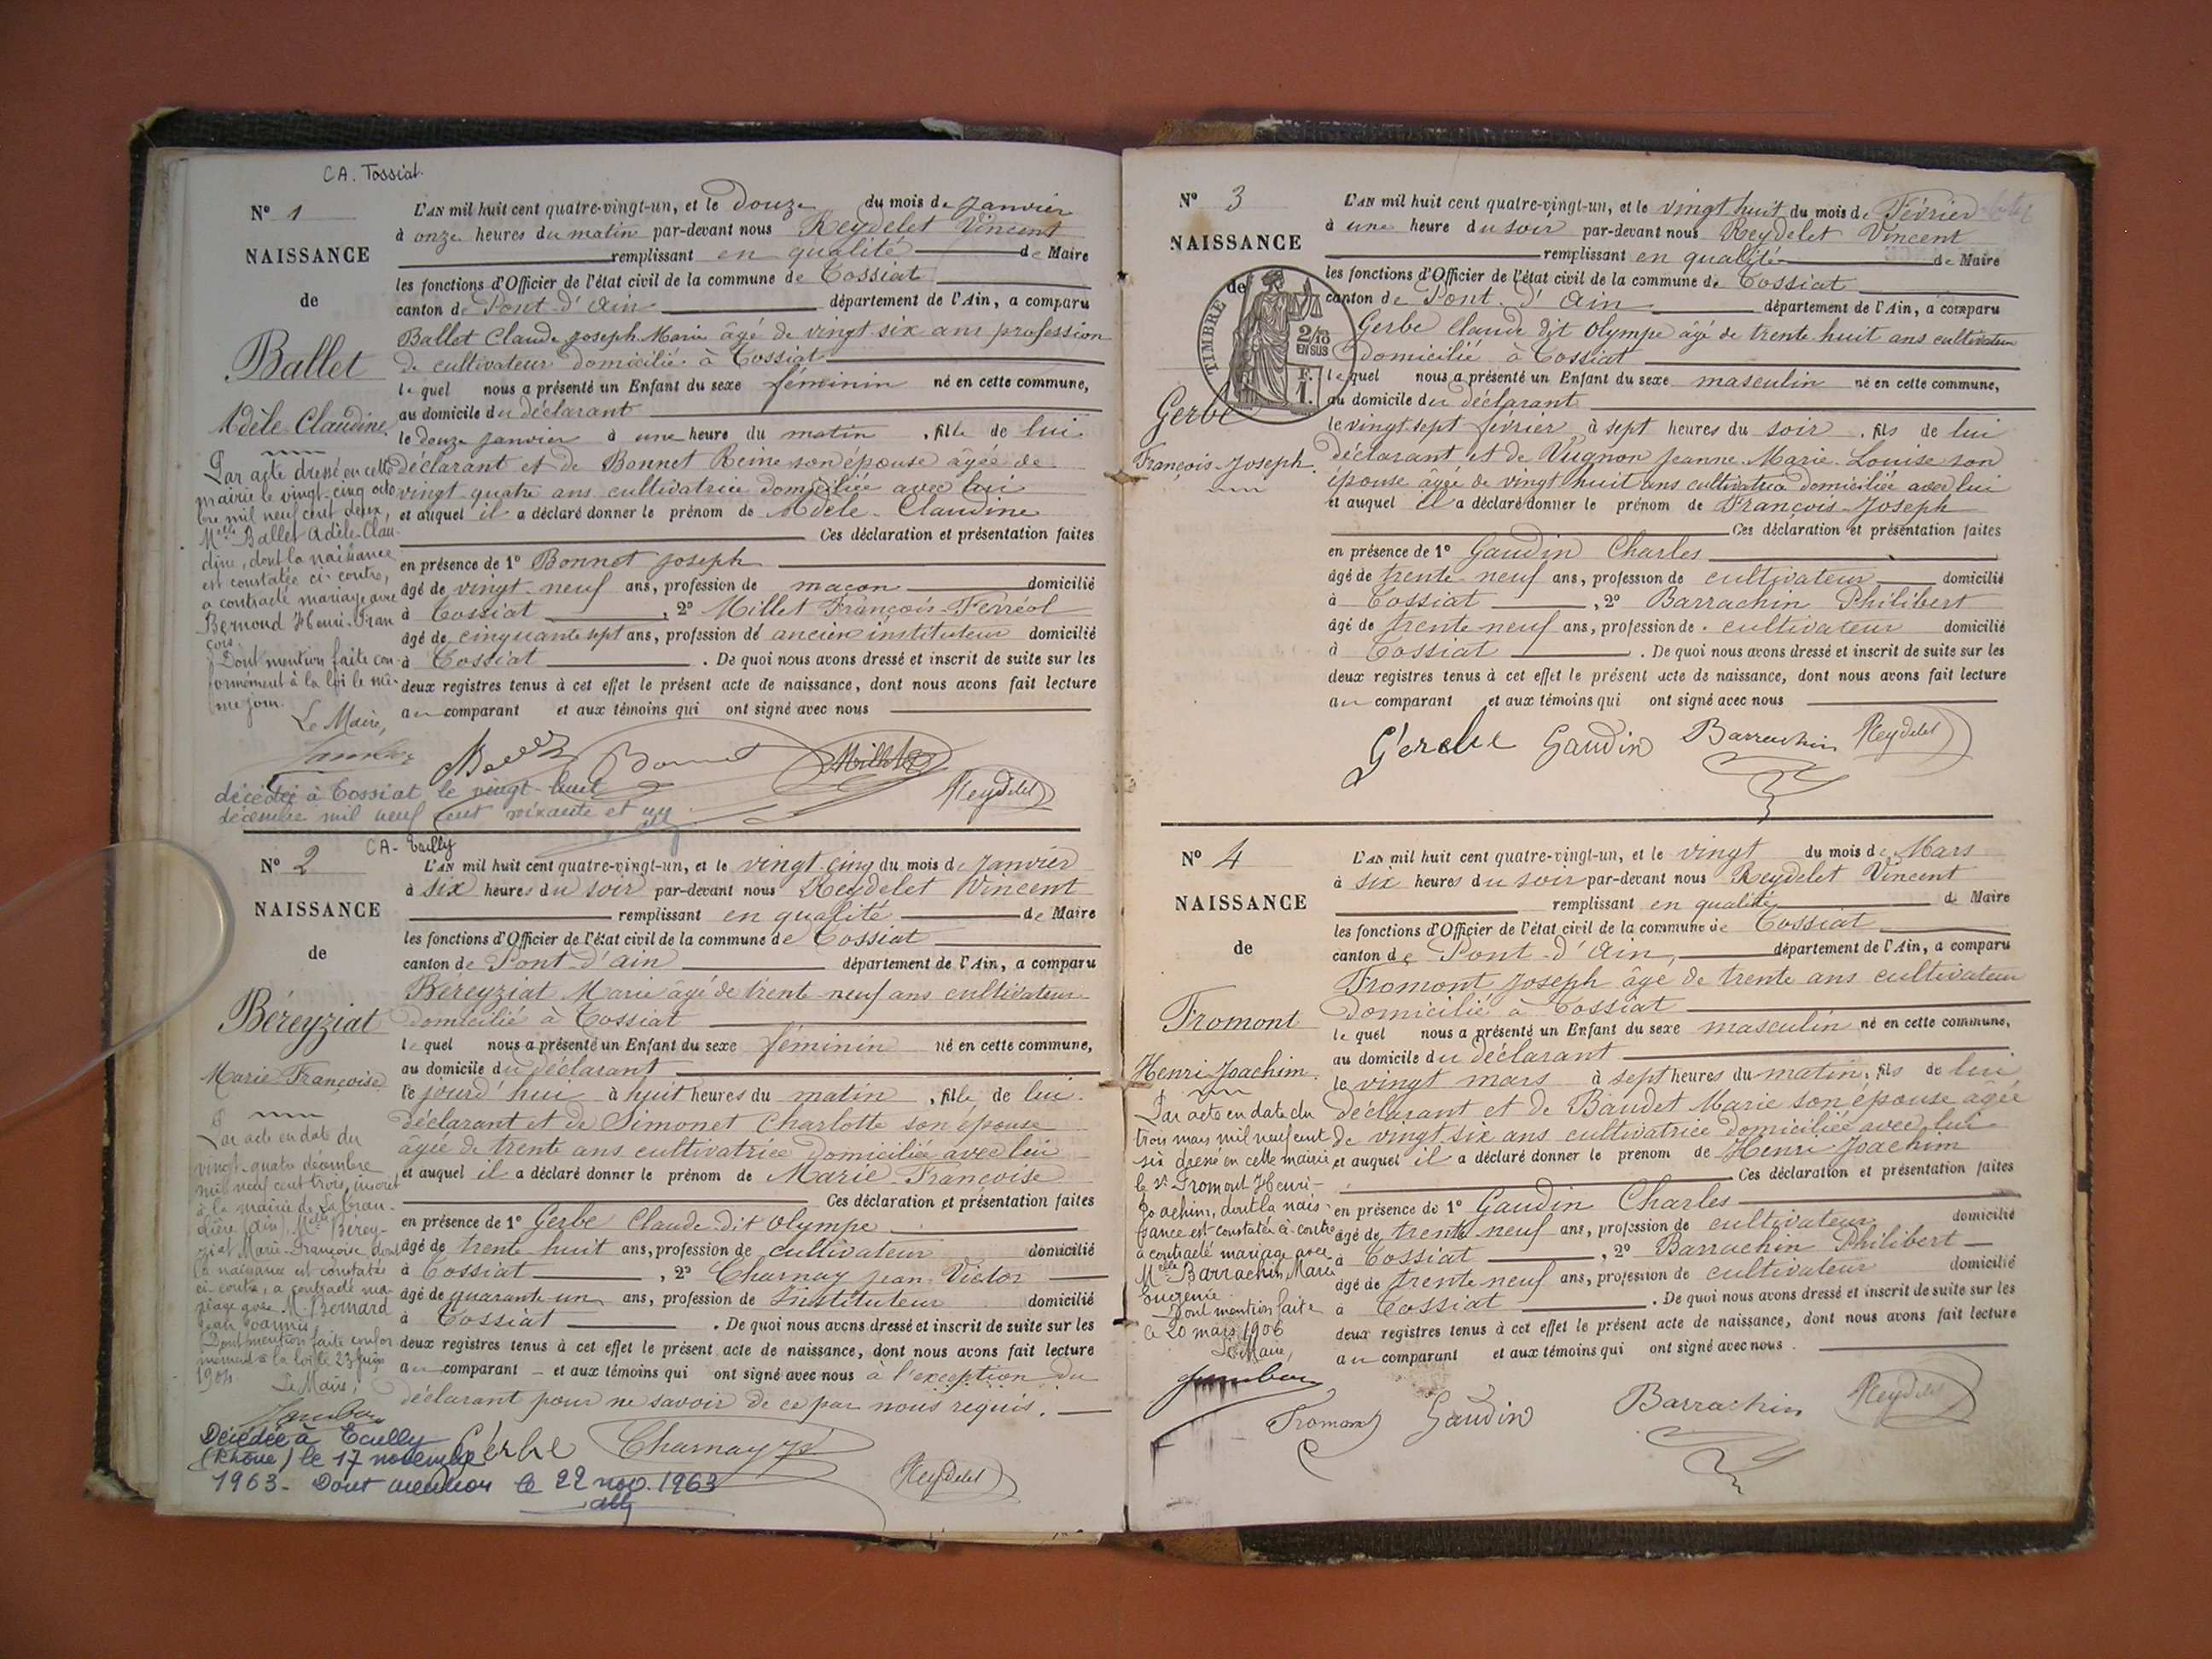 CA. Tossiat
N° 1
NAISSANCE
de
Ballet
Adèle Claudine
L'AN mil huit cent quatre-vingt-un, et le douze du mois de Janvier
à onze heures du matin par-devant nous Reydelet Vincent
remplissant en qualité de Maire
les fonctions d'Officier de l'état civil de la commune de Tossiat
canton de Pont-d'Ain département de l'Ain, a comparu
Ballet Claude Joseph Marie âgé de vingt six ans profession
de cultivateur domicilié à Tossiat
lequel nous a présenté un Enfant du sexe féminin né en cette commune,
au domicile du déclarant
le douze janvier à une heure du matin, fille de lui
déclarant et de Bonnet Reine son épouse âgée de
vingt quatre ans cultivatrice domiciliée avec lui
et auquel il a déclaré donner le prénom de Adèle-Claudine
Ces déclaration et présentation faites
en présence de 1° Bonnet Joseph
âgé de vingt-neuf ans, profession de maçon domicilié
à Tossiat, 2° Millet François-Ferréol
âgé de cinquante sept ans, profession de ancien instituteur domicilié
à Tossiat. De quoi nous avons dressé et inscrit de suite sur les
deux registres tenus à cet effet le présent acte de naissance, dont nous avons fait lecture
au comparant et aux témoins qui ont signé avec nous
Par acte dressé en cette
mairie le vingt-cinq octo
bre mil neuf cent deux,
Melle Ballet Adèle-Clau-
dine, dont la naissance
est constatée ci-contre,
a contracté mariage avec
Bernoud Henri-Fran
çois.
Dont mention faite con-
formément à la loi le mê-
me jour.
Le Maire,
Bonnet Millet
Reydelet
décédée à Tossiat le vingt-huit
décembre mil neuf cent soixante et un
CA- Ecully
N° 2
NAISSANCE
de
Béreyziat
Marie Françoise
L'AN mil huit cent quatre-vingt-un, et le vingt cinq du mois de Janvier
à six heures du soir par-devant nous Reydelet Vincent
remplissant en qualité de Maire
les fonctions d'Officier de l'état civil de la commune de Tossiat
canton de Pont-d'Ain département de l'Ain, a comparu
Béreyziat Marie âgé de trente-neuf ans cultivateur
domicilié à Tossiat
lequel nous a présenté un Enfant du sexe féminin né en cette commune,
au domicile du déclarant
le jourd'hui à huit heures du matin, fille de lui
déclarant et de Simonet Charlotte son épouse
âgée de trente ans cultivatrice domiciliée avec lui
et auquel il a déclaré donner le prénom de Marie-Françoise
Ces déclaration et présentation faites
en présence de 1° Gerbe Claude dit Olympe
âgé de trente-huit ans, profession de cultivateur domicilié
à Tossiat, 2° Charnay Jean-Victor
âgé de quarante un ans, profession de Instituteur domicilié
à Tossiat. De quoi nous avons dressé et inscrit de suite sur les
deux registres tenus à cet effet le présent acte de naissance, dont nous avons fait lecture
au comparant et aux témoins qui ont signé avec nous à l'exception du
déclarant pour ne savoir de ce par nous requis.
Par acte en date du
vingt-quatre décembre
mil neuf cent trois, inscrit
à la mairie de La Tran-
clière (Ain), Melle Bérey-
ziat Marie-Françoise dont
la naissance est constatée
ci-contre, a contracté ma-
riage avec M. Bernard
Jean Joannis.
Dont mention faite confor
mément à la loi le 23 Juin
1904.
Le Maire,
Gerbe Charnay
Reydelet
Décédée à Ecully
(Rhône) le 17 novembre
1963. Dont mention le 22 nov. 1963
N° 3
NAISSANCE
de
TIMBRE
2/10
EN SUS
F.
1.
Gerbe
François-Joseph
L'AN mil huit cent quatre-vingt-un, et le vingt huit du mois de Février
à une heure du soir par-devant nous Reydelet Vincent
remplissant en qualité de Maire
les fonctions d'Officier de l'état civil de la commune de Tossiat
canton de Pont-d'Ain département de l'Ain, a comparu
Gerbe Claude dit Olympe âgé de trente-huit ans cultivateur
domicilié à Tossiat
lequel nous a présenté un Enfant du sexe masculin né en cette commune,
au domicile du déclarant
le vingt sept février à sept heures du soir, fils de lui
déclarant et de Vugnon Jeanne-Marie-Louise son
épouse âgée de vingt huit ans cultivatrice domiciliée avec lui
et auquel il a déclaré donner le prénom de François-Joseph
Ces déclaration et présentation faites
en présence de 1° Gaudin Charles
âgé de trente-neuf ans, profession de cultivateur domicilié
à Tossiat, 2° Barrachin Philibert
âgé de trente neuf ans, profession de cultivateur domicilié
à Tossiat. De quoi nous avons dressé et inscrit de suite sur les
deux registres tenus à cet effet le présent acte de naissance, dont nous avons fait lecture
au comparant et aux témoins qui ont signé avec nous
Gerbe Gaudin Barrachin Reydelet
N° 4
NAISSANCE
de
Fromont
Henri-Joachim
L'AN mil huit cent quatre-vingt-un, et le vingt du mois de Mars
à six heures du soir par-devant nous Reydelet Vincent
remplissant en qualité de Maire
les fonctions d'Officier de l'état civil de la commune de Tossiat
canton de Pont-d'Ain, département de l'Ain, a comparu
Fromont Joseph âgé de trente ans cultivateur
domicilié à Tossiat
lequel nous a présenté un Enfant du sexe masculin né en cette commune,
au domicile du déclarant
le vingt mars à sept heures du matin, fils de lui
déclarant et de Baudet Marie son épouse âgée
de vingt six ans cultivatrice domiciliée avec lui
et auquel il a déclaré donner le prénom de Henri-Joachim
Ces déclaration et présentation faites
en présence de 1° Gaudin Charles
âgé de trente neuf ans, profession de cultivateur domicilié
à Tossiat, 2° Barrachin Philibert
âgé de trente neuf ans, profession de cultivateur domicilié
à Tossiat. De quoi nous avons dressé et inscrit de suite sur les
deux registres tenus à cet effet le présent acte de naissance, dont nous avons fait lecture
au comparant et aux témoins qui ont signé avec nous.
Par acte en date du
trois mars mil neuf cent
six dressé en cette mairie
le sr Fromont Henri-
Joachim, dont la nais-
sance est constatée ci-contre
a contracté mariage avec
Melle Barrachin Marie
Eugénie.
Dont mention faite
le 20 mars 1906
Le Maire,
Fromont Gaudin Barrachin Reydelet